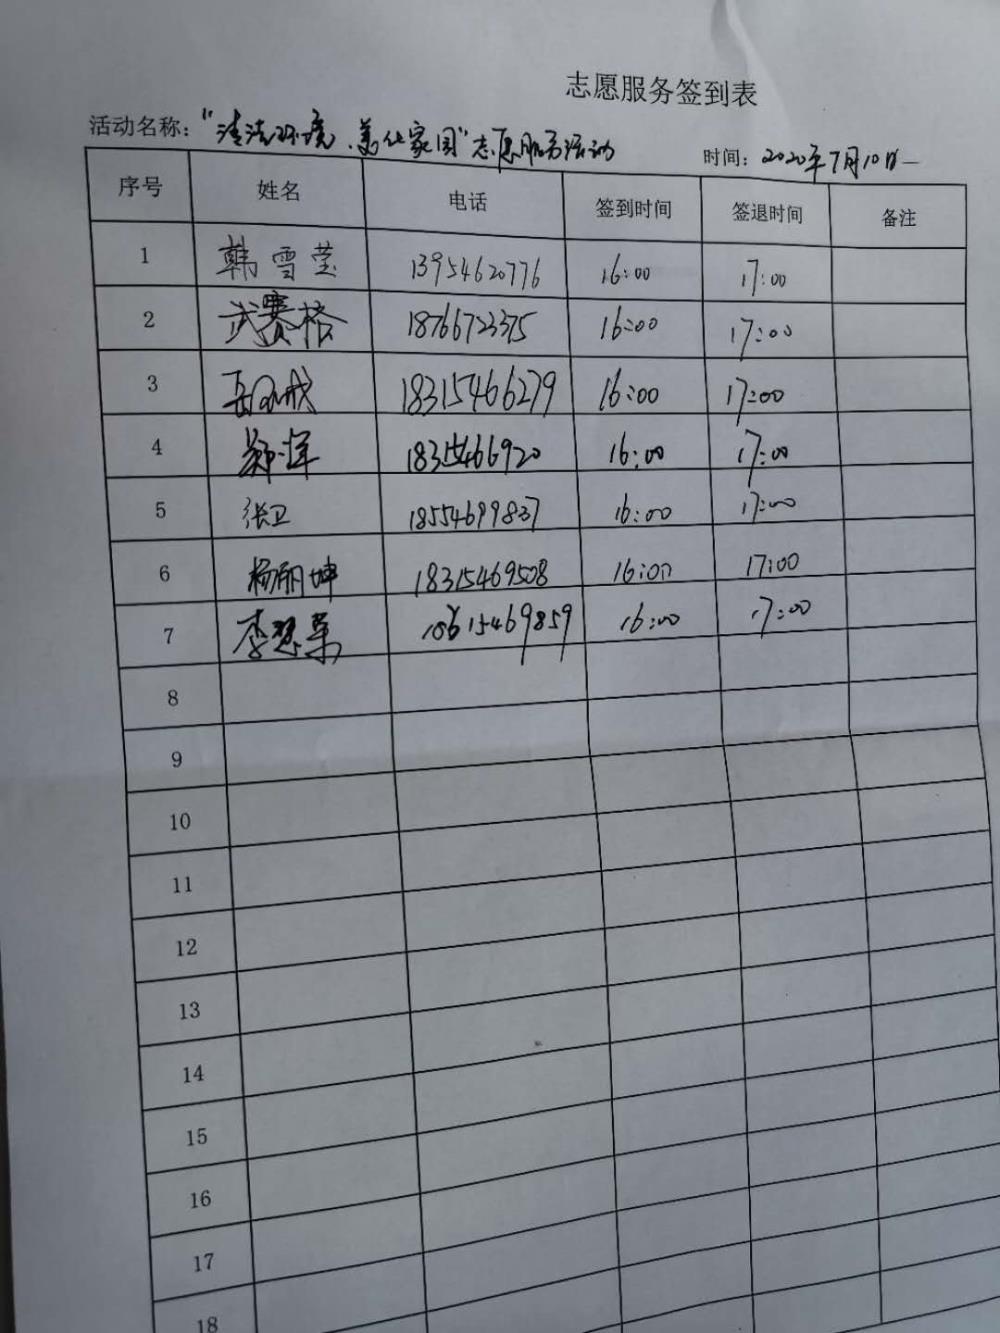 志愿服务签到表
活动名称："清洁环境、美化家园"志愿服务活动 时间：2020年7月10日
序号 姓名 电话 签到时间 签退时间 备注
1 韩雪莹 13954620776 16:00 17:00
2 武赛格 18766723375 16:00 17:00
3 18315466279 16:00 17:00
4 郑洋 18315466920 16:00 17:00
5 张卫 18554699837 16:00 17:00
6 杨丽坤 18315469508 16:00 17:00
7 18615469859 16:00 17:00
8
9
10
11
12
13
14
15
16
17
18